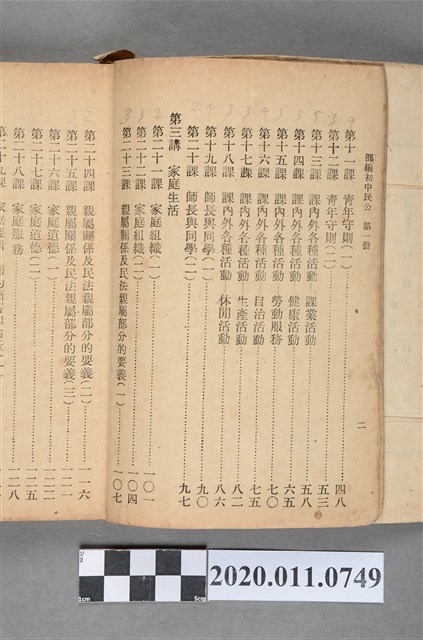 部編初中公民 第一册
二
第十一課 青年守則(一)……四八
第十二課 青年守則(二)……五三
第十三課 課內外各種活動 課業活動……五八
第十四課 課內外各種活動 健康活動……六五
第十五課 課內外各種活動 勞動服務……七〇
第十六課 課內外各種活動 自治活動……七五
第十七課 課內外各種活動 生產活動……八二
第十八課 課內外各種活動 休閒活動……八六
第十九課 師長與同學(一)……九〇
第二十課 師長與同學(二)……九七
第三講 家庭生活
第二十一課 家庭組織(一)……一〇一
第二十二課 家庭組織(二)……一〇四
第二十三課 親屬關係及民法親屬部分的要義(一)……一〇七
第二十四課 親屬關係及民法親屬部分的要義(二)……一一六
第二十五課 親屬關係及民法親屬部分的要義(三)……一二一
第二十六課 家庭道德(一)……一二二
第二十七課 家庭道德(二)……一二五
第二十八課 家庭服務……一二八
1cm
5cm
2020.011.0749